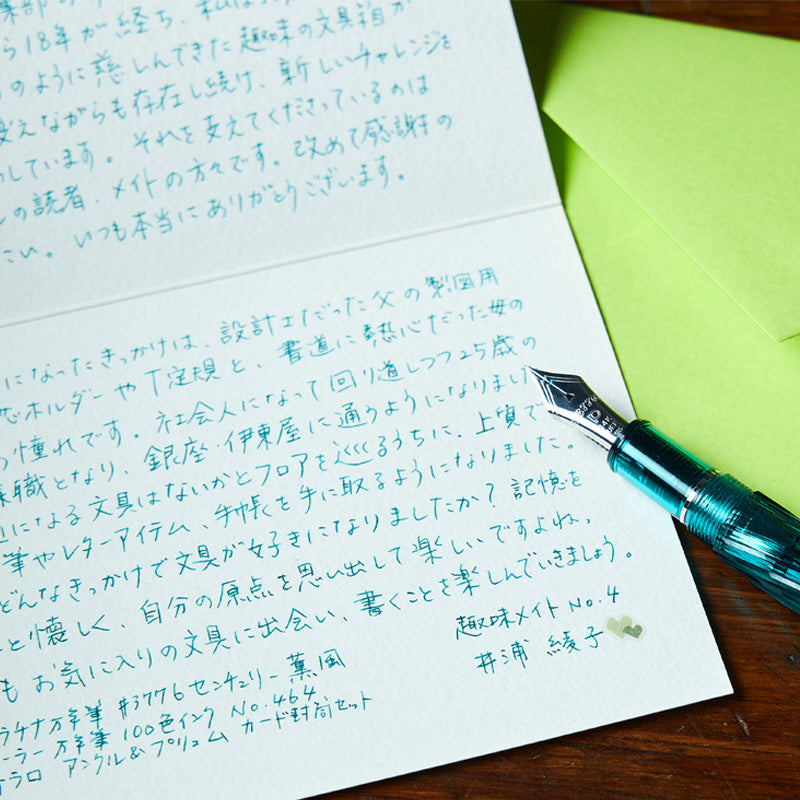 ら18年が経ち、私は
のように慈しんできた趣味の文具箱が
変えながらも存在し続け、新しいチャレンジを
しています。それを支えてくださっているのは
の読者・メイトの方々です。改めて感謝の
たい。いつも本当にありがとうございます。
になったきっかけは、設計士だった父の製図用
芯ホルダーやT定規と、書道に熱心だった母の
憧れです。社会人になって回り道しつつ25歳の
職となり、銀座・伊東屋に通うようになりまし
になる文具はないかとフロアを巡るうちに、上質で
筆やレターアイテム、手帳を手に取るようになりました。
どんなきっかけで文具が好きになりましたか？記憶を
と懐しく、自分の原点を思い出して楽しいですよね。
もお気に入りの文具に出会い、書くことを楽しんでいきましょう。
趣味メイト No.4
井浦 綾子
ラチナ万年筆 #3776センチュリー 薫風
ーラー万年筆 100色インク No.464
ラロ アンクル&プリュム カード封筒セット
3776
P